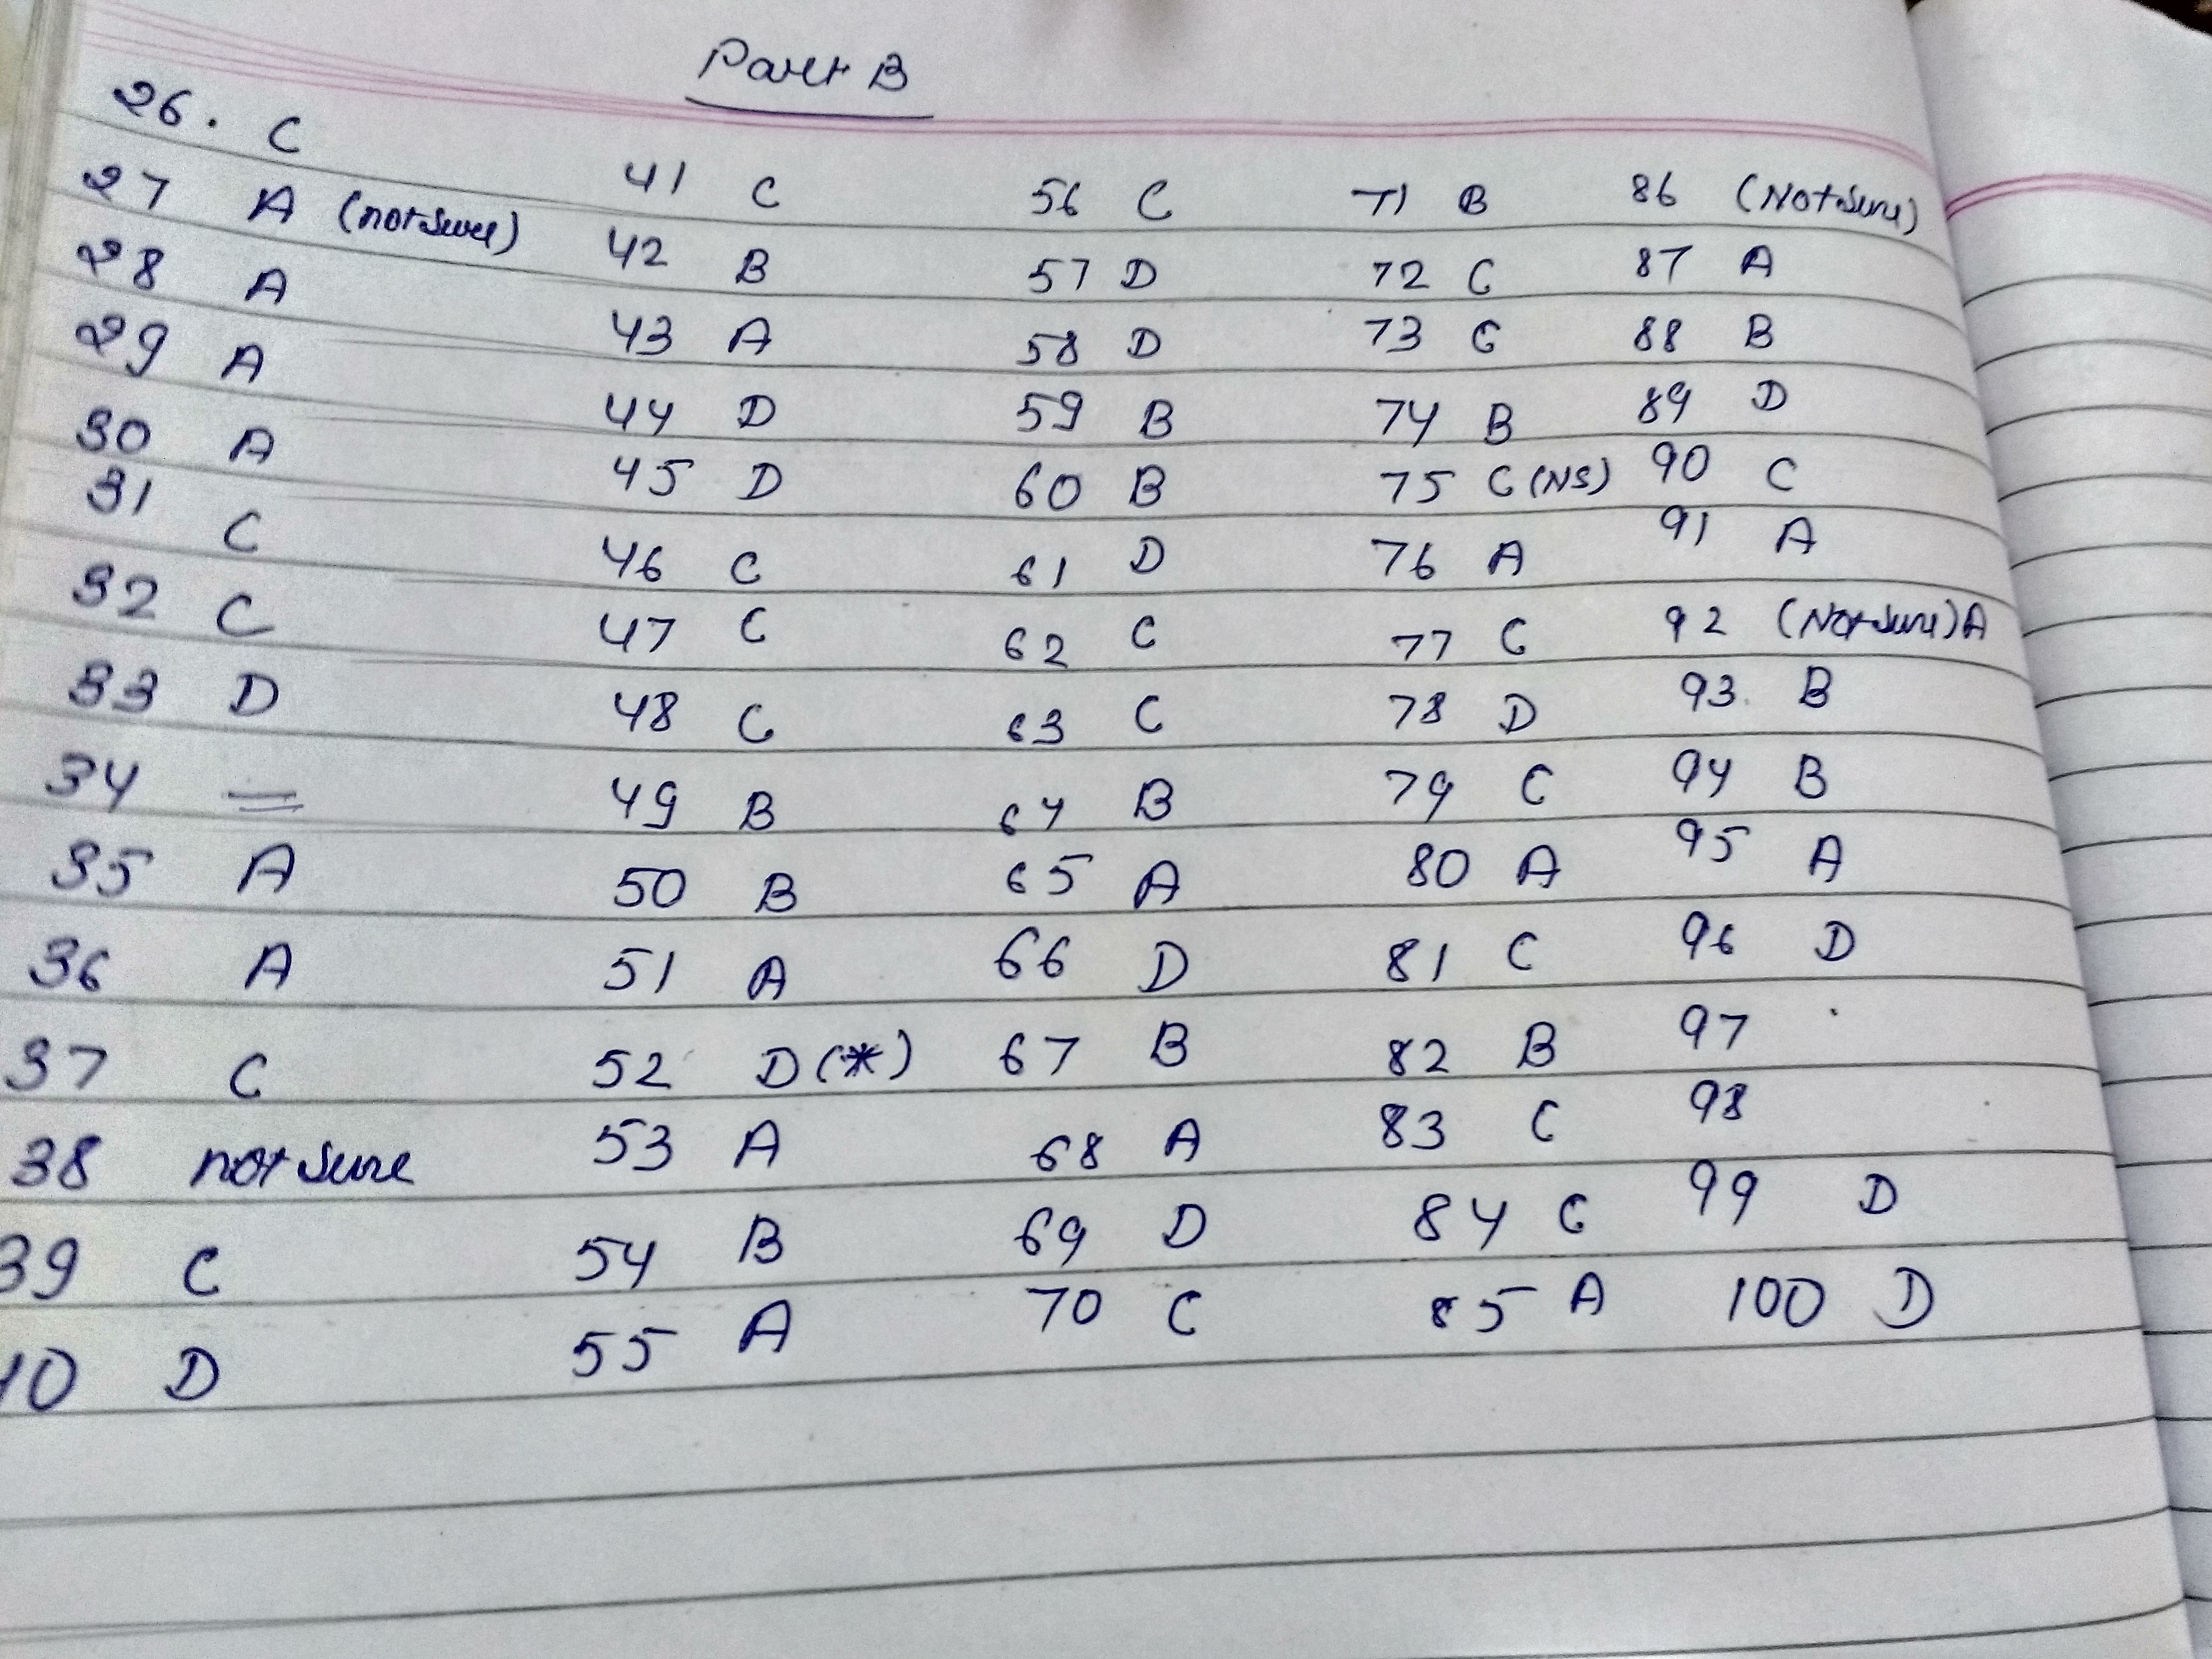 Part B
26. C
27 A (not sure)
28 A
29 A
30 A
31 C
32 C
33 D
34 —
35 A
36 A
37 C
38 not sure
39 C
40 D
41 C
42 B
43 A
44 D
45 D
46 C
47 C
48 C
49 B
50 B
51 A
52 D (*)
53 A
54 B
55 A
56 C
57 D
58 D
59 B
60 B
61 D
62 C
63 C
64 B
65 A
66 D
67 B
68 A
69 D
70 C
71 B
72 C
73 C
74 B
75 C (NS)
76 A
77 C
78 D
79 C
80 A
81 C
82 B
83 C
84 C
85 A
86 (Not sure)
87 A
88 B
89 D
90 C
91 A
92 (Not sure) A
93. B
94 B
95 A
96 D
97
98
99 D
100 D